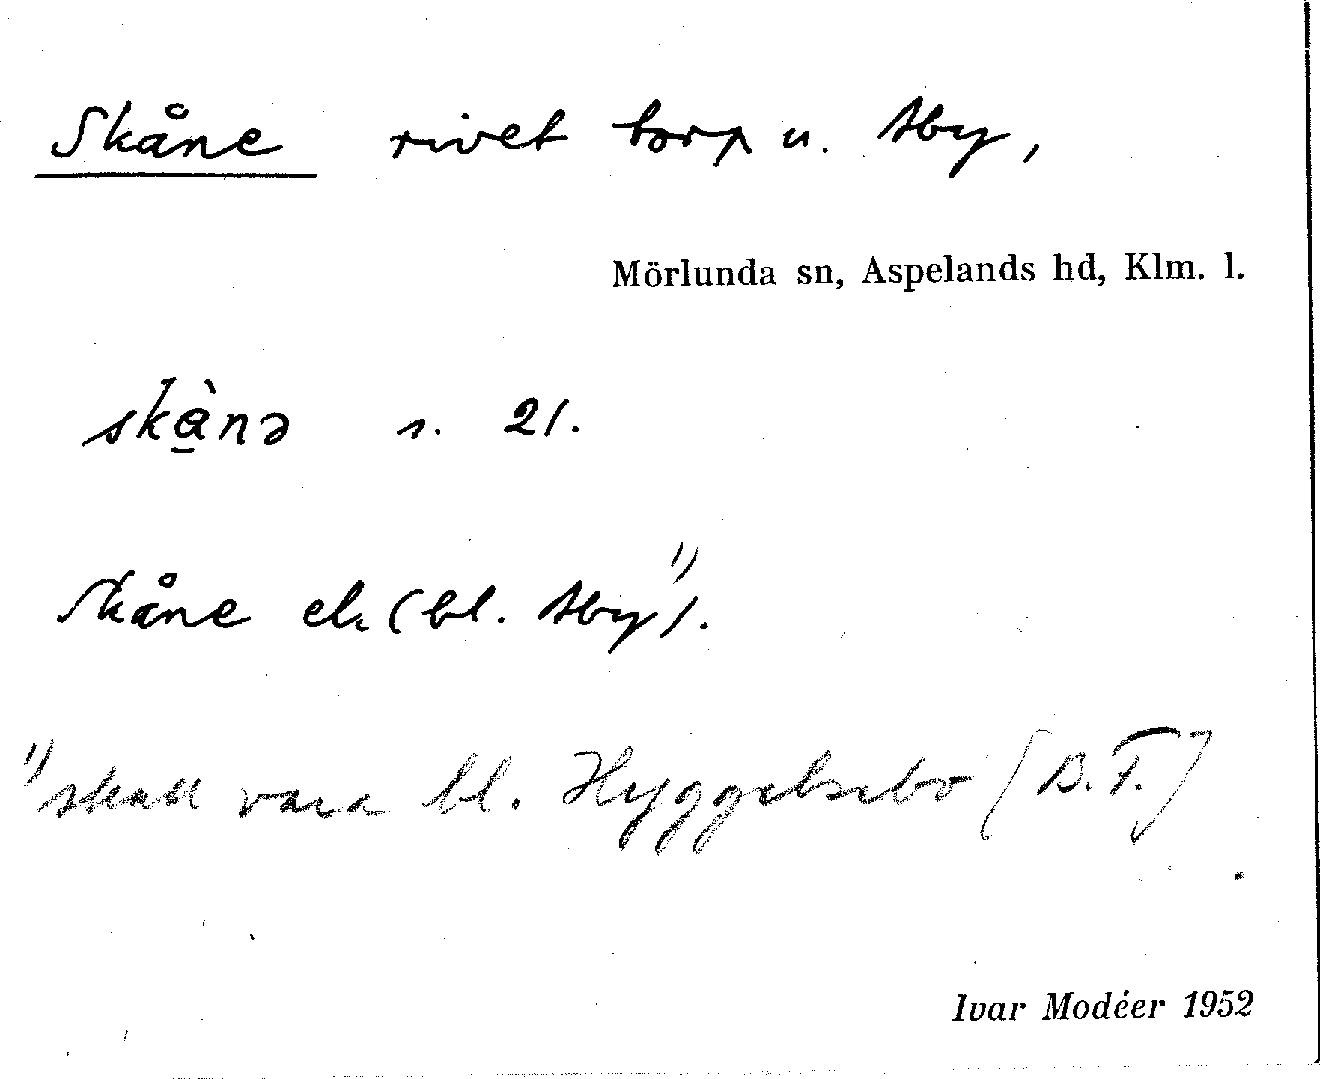 Skåne rivet torp u. Åby,
Mörlunda sn, Aspelands hd, Klm. l.
skà̱nə s. 21.
Skåne ek (bl. Åby¹⁾).
¹⁾ skall vara bl. Hyggelsebo [B.F.]
Ivar Modéer 1952